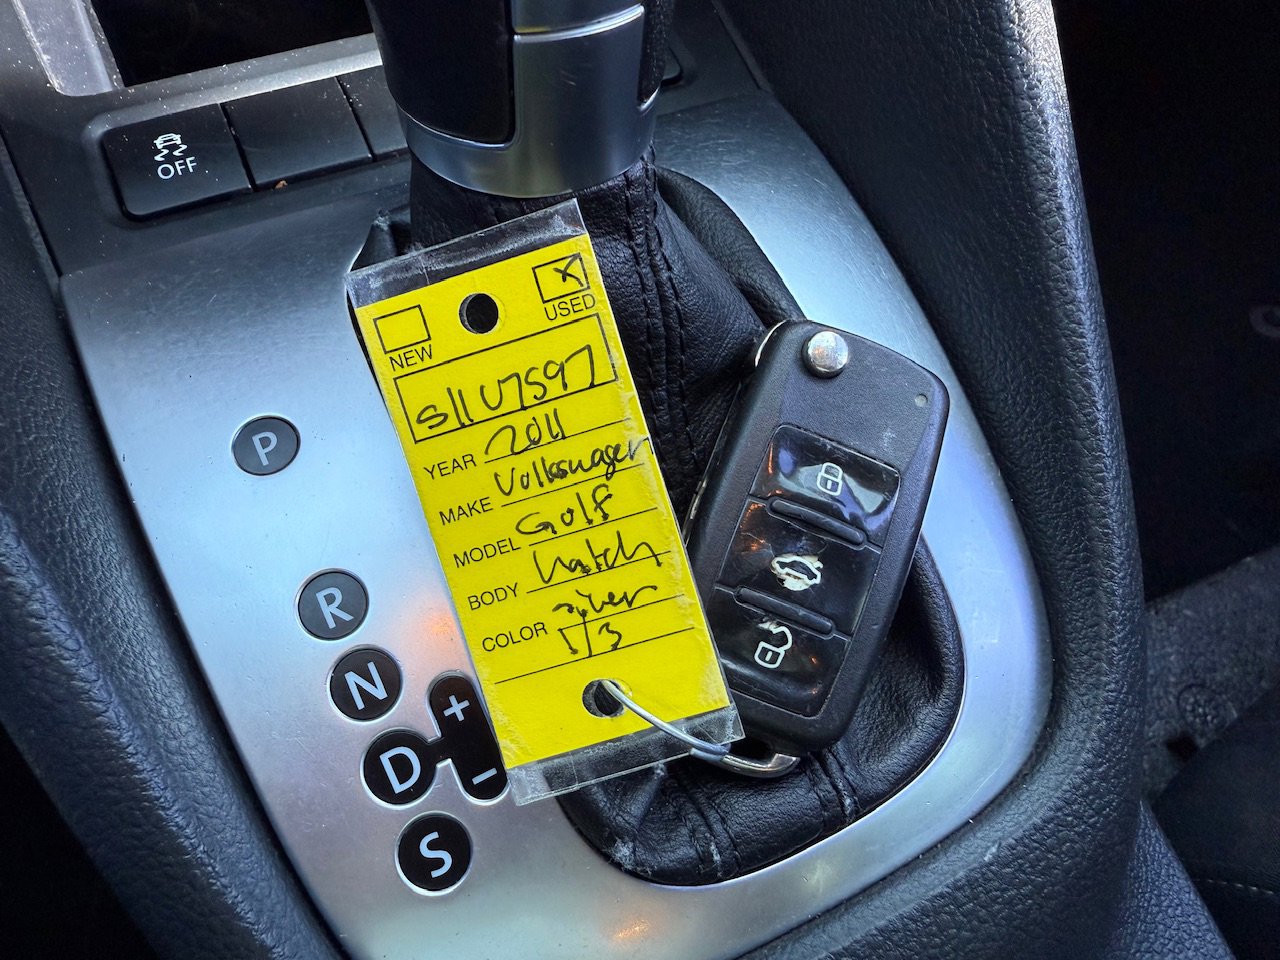 OFF
USED
NEW
S11U7597
YEAR 2011
MAKE Volkswagen
MODEL Golf
BODY hatch
COLOR silver
1/3
P
R
N
D + -
S